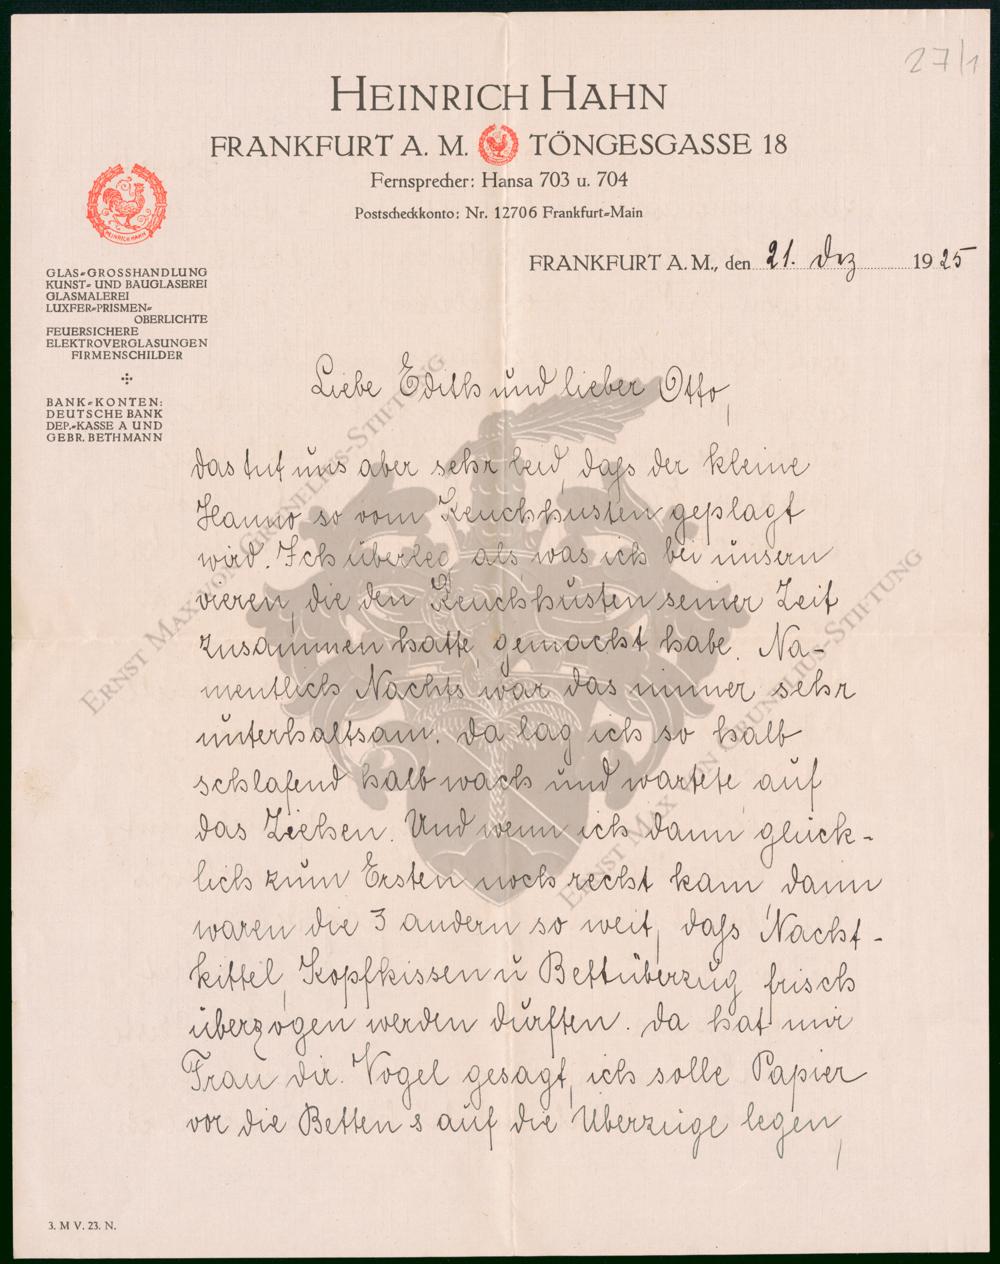 27/1
HEINRICH HAHN
FRANKFURT A. M. TÖNGESGASSE 18
Fernsprecher: Hansa 703 u. 704
Postscheckkonto: Nr. 12706 Frankfurt-Main
HEINRICH HAHN
FRANKFURT A. M., den 21. Dez 1925
GLAS-GROSSHANDLUNG
KUNST- UND BAUGLASEREI
GLASMALEREI
LUXFER-PRISMEN-
OBERLICHTE
FEUERSICHERE
ELEKTROVERGLASUNGEN
FIRMENSCHILDER
BANK-KONTEN:
DEUTSCHE BANK
DEP.-KASSE A UND
GEBR. BETHMANN
Liebe Edith und lieber Otto,
das tut uns aber sehr leid, daß der kleine
Hanno so vom Keuchhusten geplagt
wird. Ich überleg als, was ich bei unsern
vieren, die den Keuchhusten seiner Zeit
zusammen hatte, gemacht habe. Na-
mentlich Nachts war das immer sehr
unterhaltsam. Da lag ich so halb
schlafend halb wach und wartete auf
das Ziehen. Und wenn ich dann glück-
lich zum Ersten noch recht kam, dann
waren die 3 andern so weit, daß Nacht-
kittel, Kopfkissen u Bettüberzug frisch
überzogen werden durften. Da hat mir
Frau Dir. Vogel gesagt, ich solle Papier
vor die Betten & auf die Überzüge legen,
3. M V. 23. N.
ERNST MAX VON GRUNELIUS-STIFTUNG
ERNST MAX VON GRUNELIUS-STIFTUNG